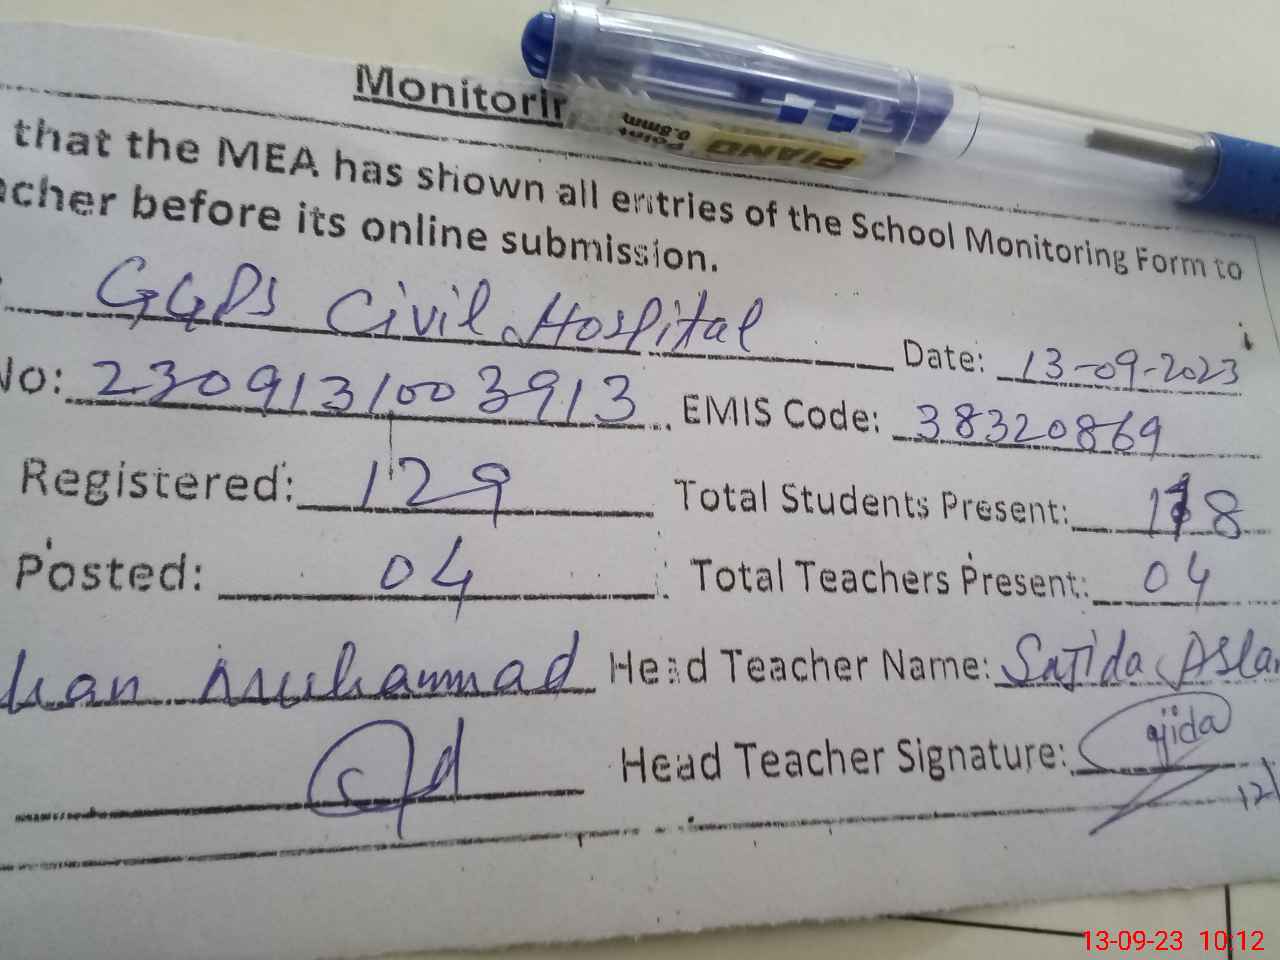 Monitorin
that the MEA has shown all entries of the School Monitoring Form to
acher before its online submission.
GGPS Civil Hospital Date: 13-09-2023
No: 2309131003913 EMIS Code: 38320869
Registered: 129 Total Students Present: 118
Posted: 04 Total Teachers Present: 04
han Muhammad Head Teacher Name: Sajida Aslam
Head Teacher Signature: ajida
Point 0.8mm
PIANO
13-09-23 10:12